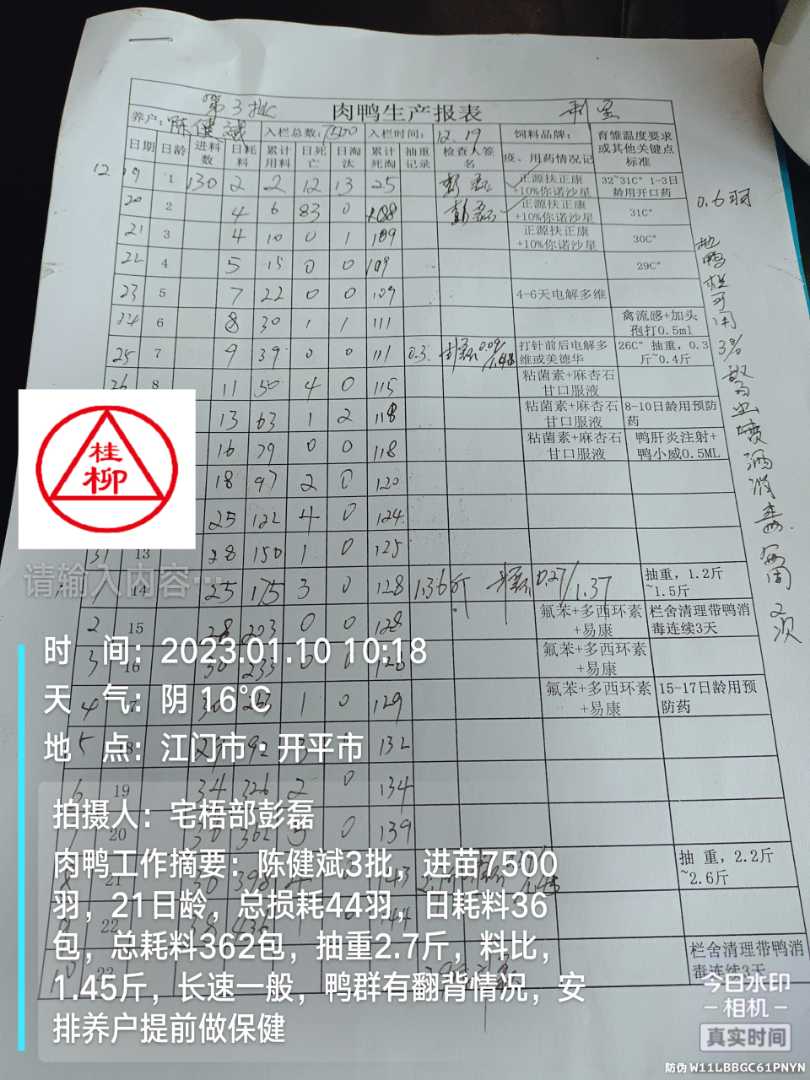 第3批 肉鸭生产报表
养户: 陈健斌 入栏总数: 7500 入栏时间: 12.19 饲料品牌: 育雏温度要求或其他关键点标准
日期 日龄 进料数 日耗料 累计用料 日死亡 日淘汰 累计死淘 抽重记录 检查人签名 疫、用药情况记
12 19 1 130 2 2 12 13 25 彭磊 正源扶正康+10%你诺沙星 32~31C° 1-3日龄用开口药
20 2 4 6 83 0 108 彭磊 正源扶正康+10%你诺沙星 31C°
21 3 4 10 0 1 109 正源扶正康+10%你诺沙星 30C°
22 4 5 15 0 0 109 29C°
23 5 7 22 0 0 109 4-6天电解多维
24 6 8 30 1 1 111 禽流感+加头孢打0.5ml
25 7 9 39 0 0 111 0.3 打针前后电解多维或美德华 26C° 抽重,0.3斤~0.4斤
26 8 11 50 4 0 115 粘菌素+麻杏石甘口服液
13 63 1 2 118 粘菌素+麻杏石甘口服液 8-10日龄用预防药
16 79 0 0 118 粘菌素+麻杏石甘口服液 鸭肝炎注射+鸭小威0.5ML
18 97 2 0 120
25 122 4 0 124
31 13 28 150 1 0 125
1 14 25 175 3 0 128 1.36斤 0.27/1.37 抽重,1.2斤~1.5斤
2 15 28 203 0 0 128 氟苯+多西环素+易康 栏舍清理带鸭消毒连续3天
3 16 30 233 0 0 128 氟苯+多西环素+易康
4 17 30 1 0 129 氟苯+多西环素+易康 15-17日龄用预防药
5 18 0 132
6 19 34 326 2 0 134
20 362 5 0 139
8 21 抽 重,2.2斤~2.6斤
22
10 23 栏舍清理带鸭消毒连续3天
0.6羽
消毒
2次
桂柳
请输入内容…
时 间: 2023.01.10 10:18
天 气: 阴 16℃
地 点: 江门市·开平市
拍摄人: 宅梧部彭磊
肉鸭工作摘要: 陈健斌3批, 进苗7500
羽, 21日龄, 总损耗44羽, 日耗料36
包, 总耗料362包, 抽重2.7斤, 料比,
1.45斤, 长速一般, 鸭群有翻背情况, 安
排养户提前做保健
今日水印
-相机-
真实时间
防伪 W11LBBGC61PNYN